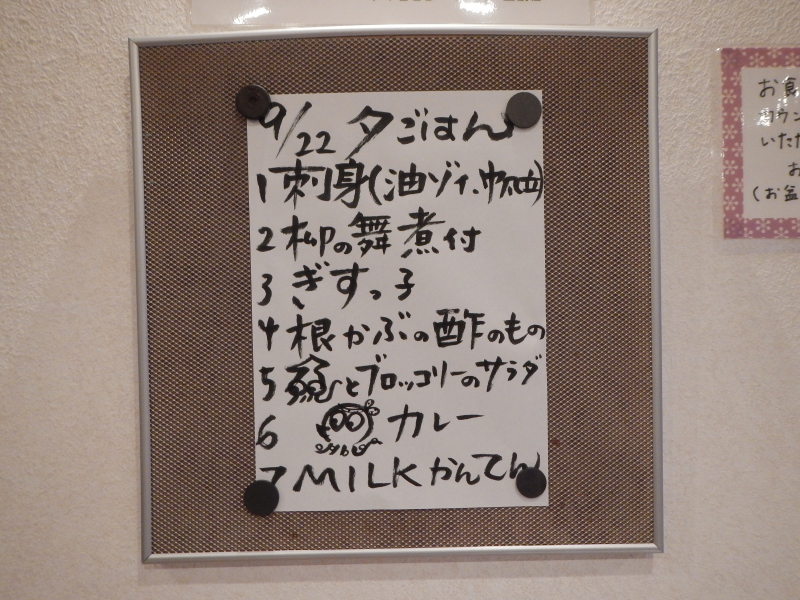 9/22 夕ごはん
1 刺身(油ゾイ、帆立)
2 柳の舞煮付
3 ぎすっ子
4 根かぶの酢のもの
5 とブロッコリーのサラダ
6 カレー
7 MILKかんてん
お食
カウン
いただ
お
(お盆